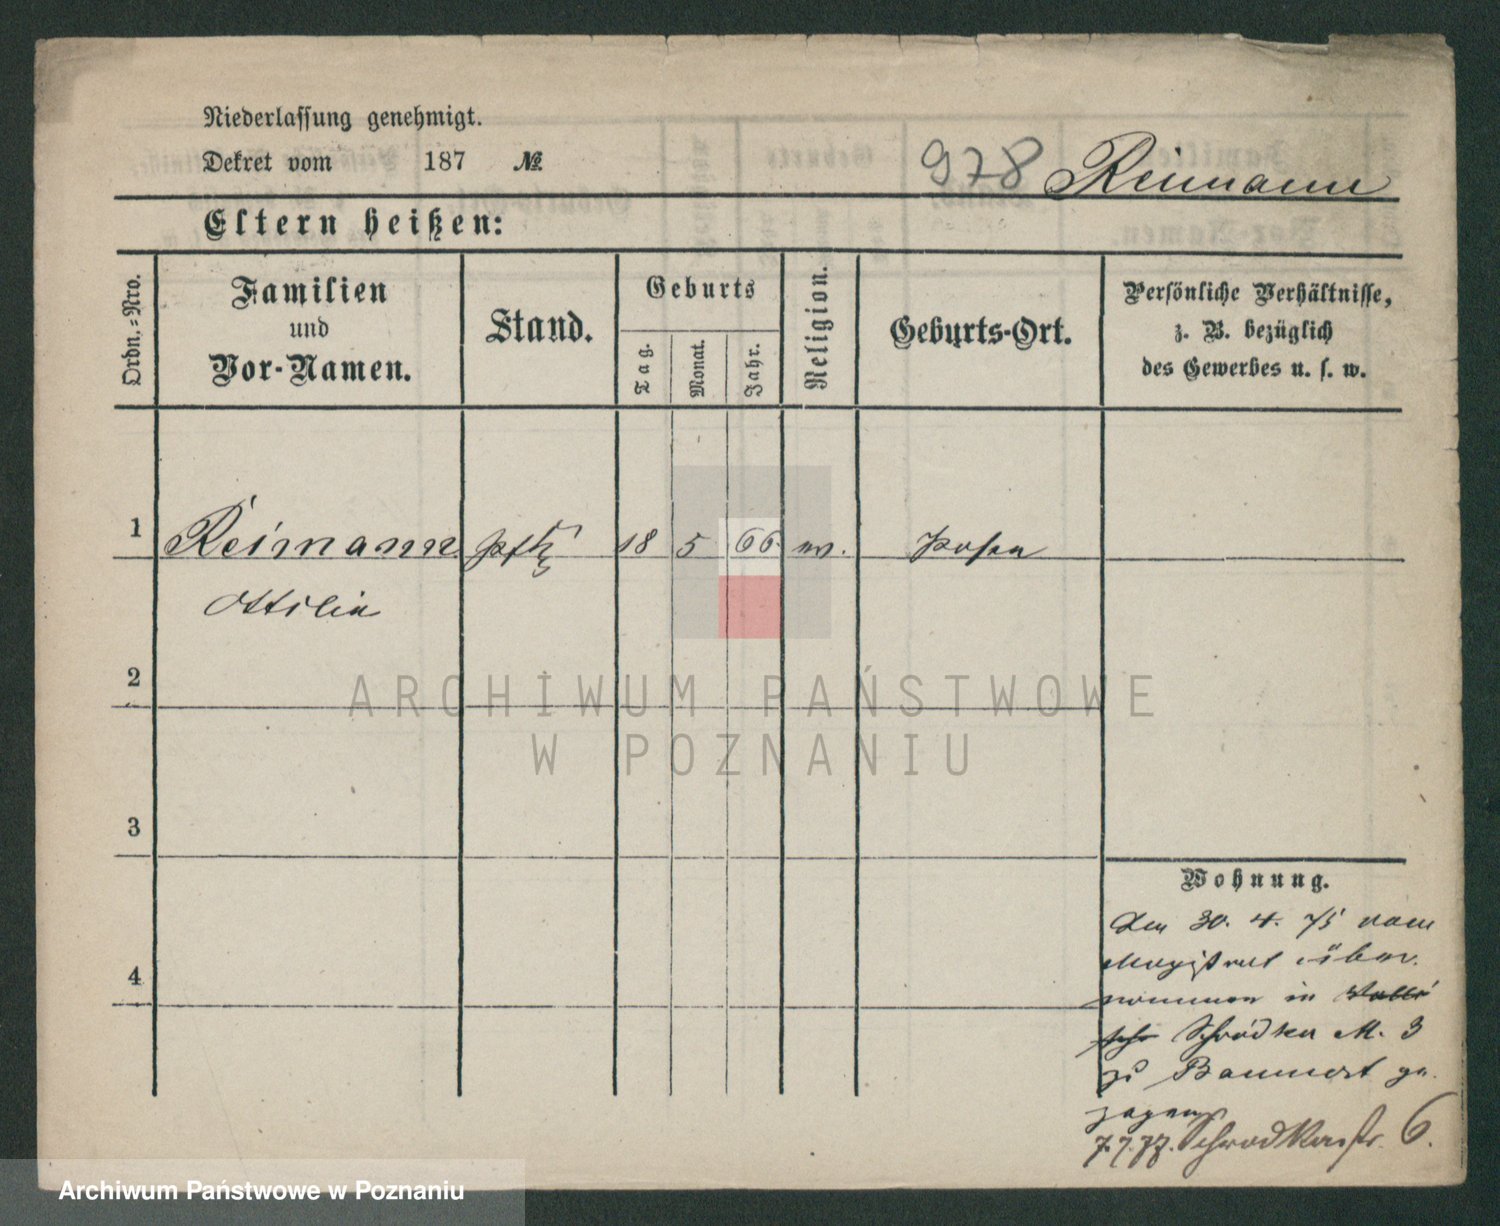 Niederlassung genehmigt.
Dekret vom 187 №
978 Reimann
Eltern heißen:
Ordn.-Nro.
Familien
und
Vor-Namen.
Stand.
Geburts
Tag.
Monat.
Jahr.
Religion.
Geburts-Ort.
Persönliche Verhältnisse,
z. B. bezüglich
des Gewerbes u. s. w.
1 Reimann 18 5 66. Posen
Ottilie
2
3
4
Wohnung.
Den 30. 4. 75 vom
Magistrat über
nommen in
Schrodka M. 3
zu Baumert ge
zogen
7.7.77. Schrodkaerstr. 6.
ARCHIWUM PAŃSTWOWE
W POZNANIU
Archiwum Państwowe w Poznaniu